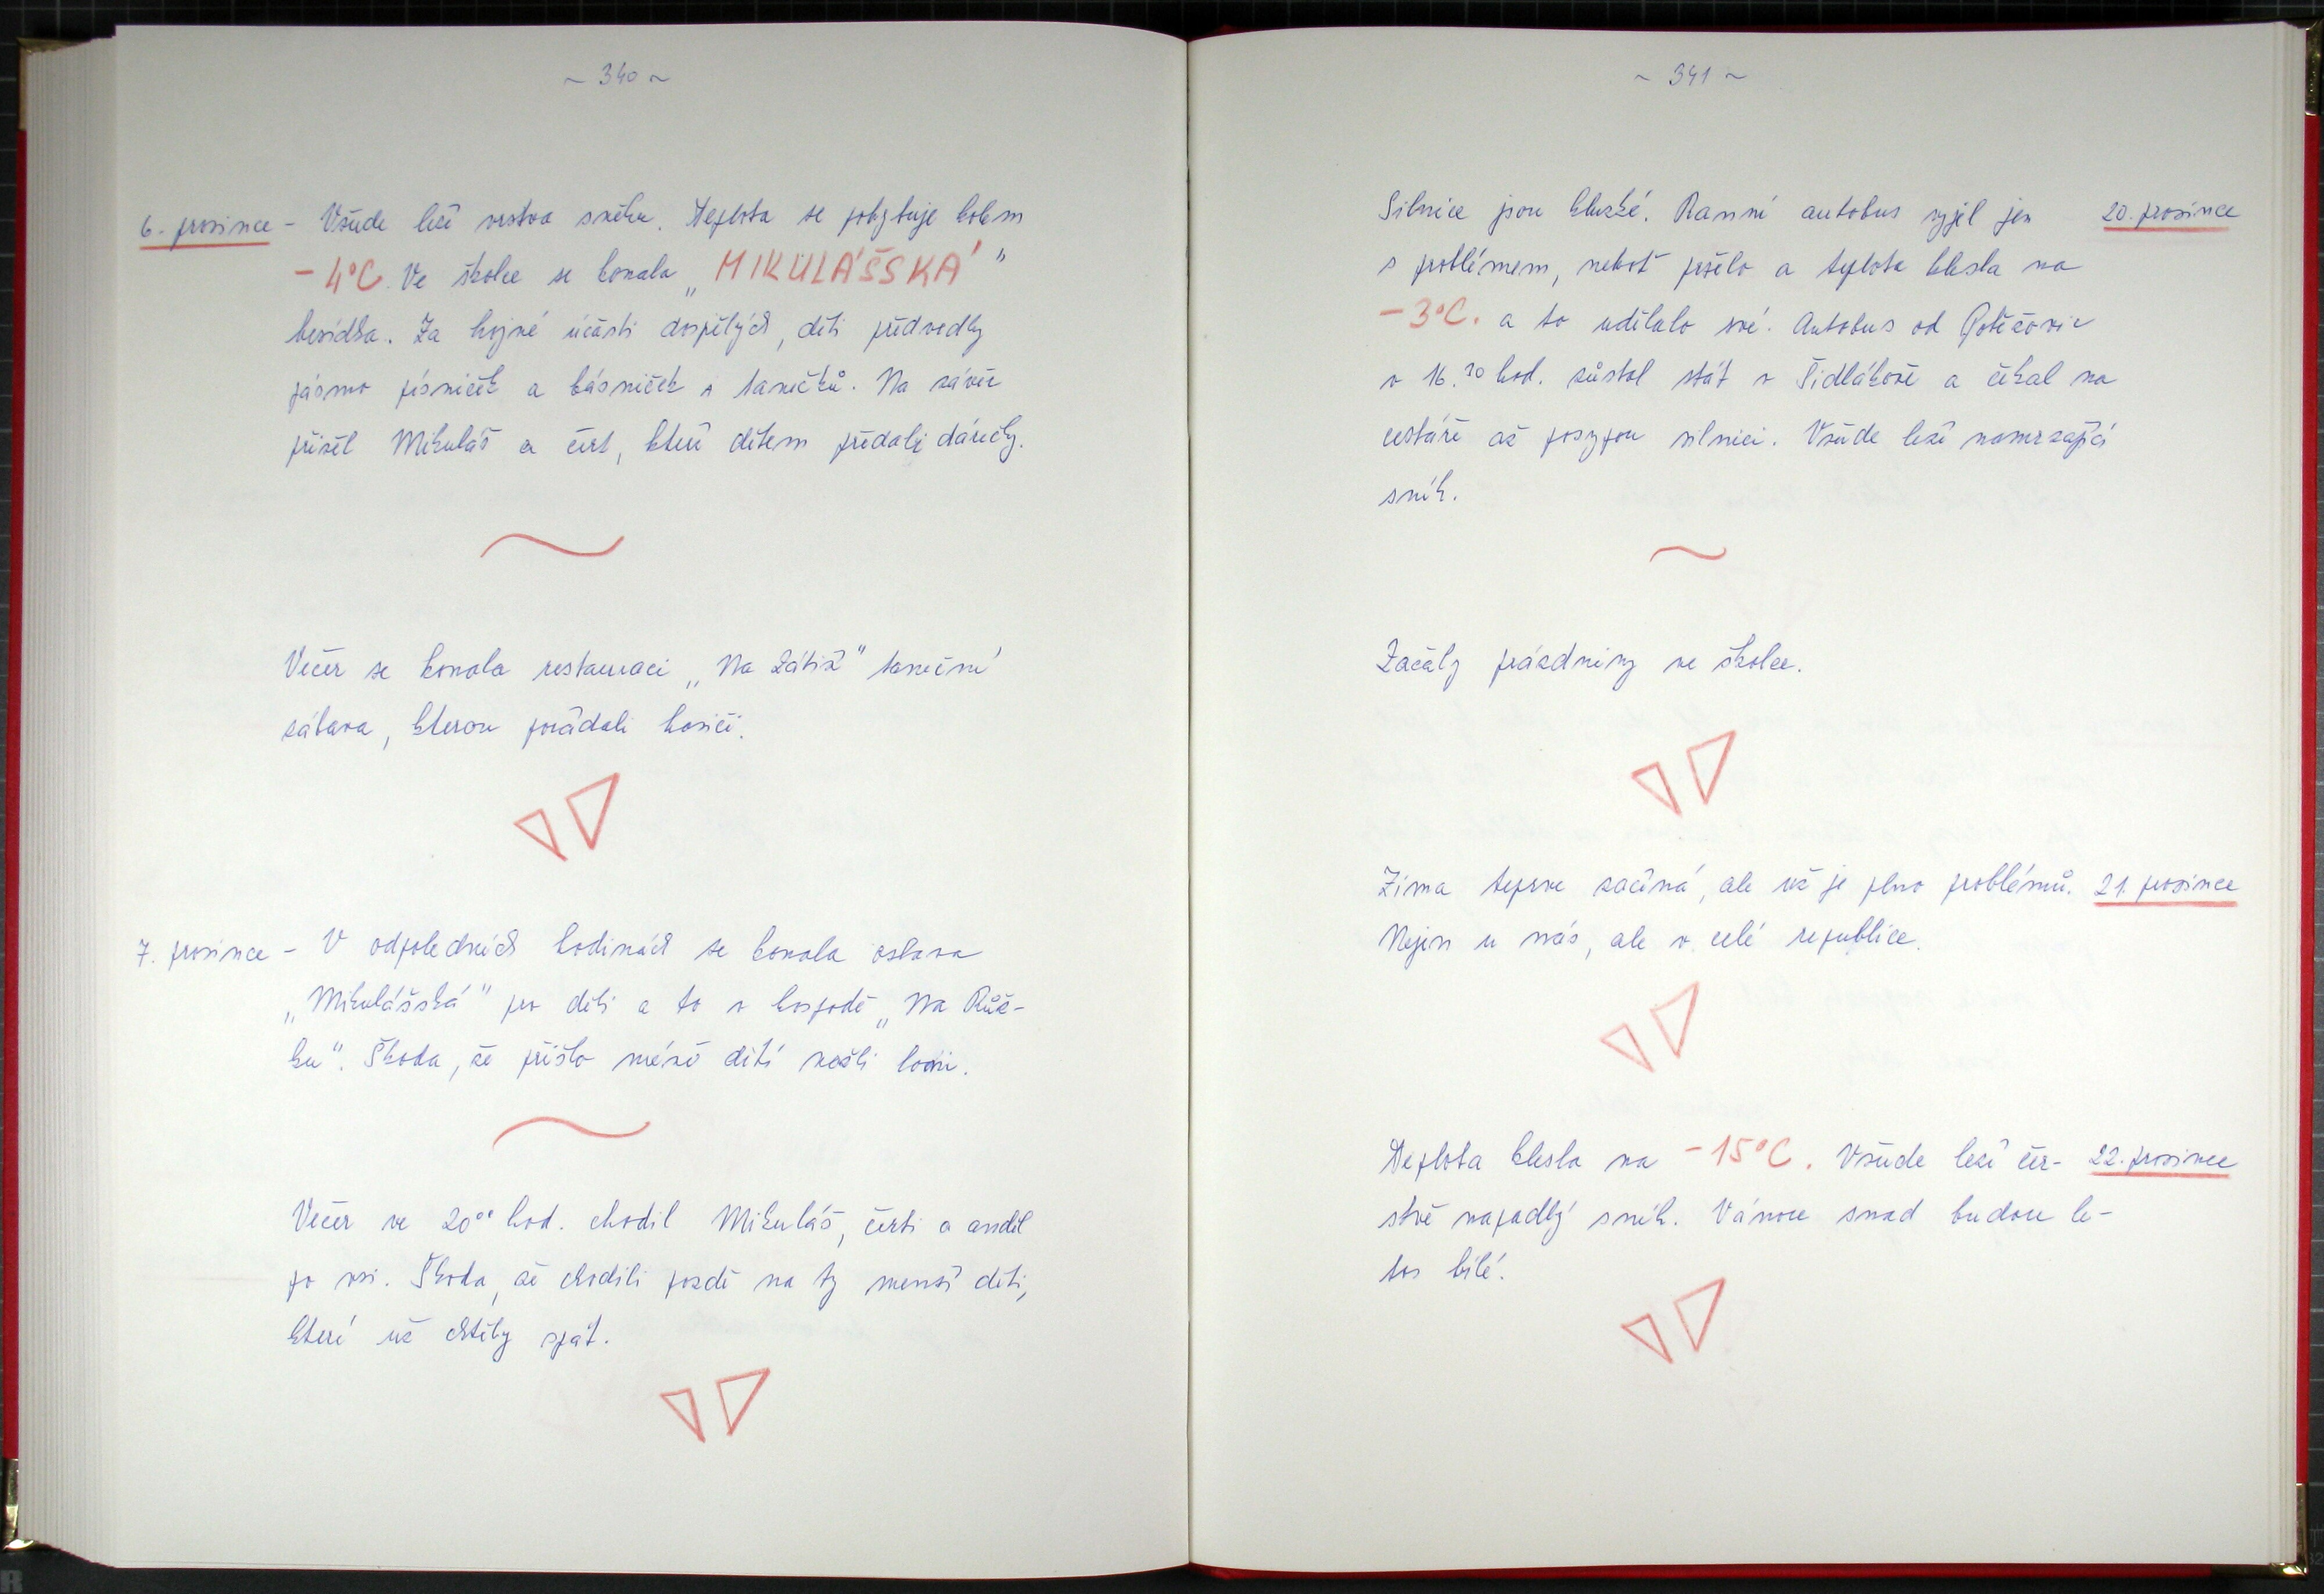 ~ 340 ~
6. prosince - Všude leží vrstva sněhu. Teplota se pohybuje kolem
-4°C. Ve školce se konala „MIKULÁŠSKÁ"
besídka. Za hojné účasti dospělých, děti předvedly
pásmo písniček a básniček a tanečků. Na závěr
přišel Mikuláš a čert, kteří dětem předali dárečky.
Večer se konala restauraci „Na Zátiší" taneční
zábava, kterou pořádali hasiči.
7. prosince - V odpoledních hodinách se konala oslava
„Mikulášská" pro děti a to v hospodě „Na Růž-
ku". Škoda, že přišlo méně dětí nežli loni.
Večer ve 20⁰⁰ hod. chodil Mikuláš, čerti a anděl
po vsi. Škoda, že chodili pozdě na ty menší děti,
které už chtěly spát.
~ 341 ~
Silnice jsou kluzké. Ranní autobus vyjel jen 20. prosince
s problémem, neboť pršelo a teplota klesla na
-3°C. a to udělalo své. Autobus od Gotěžovic
v 16.²⁰ hod. zůstal stát v Šidlákově a čekal na
cestáře až posypou silnici. Všude leží namrzající
sníh.
Začaly prázdniny ve školce.
Zima teprve začíná, ale už je plno problémů. 21. prosince
Nejen u nás, ale v celé republice.
Teplota klesla na -15°C. Všude leží čer- 22. prosince
stvě napadlý sníh. Vánoce snad budou le-
tos bílé.